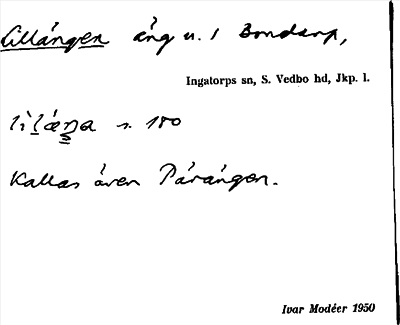 Lillängen äng u. 1 Bondarp,
Ingatorps sn, S. Vedbo hd, Jkp. l.
s. 180
Kallas även Pärängen.
Ivar Modéer 1950